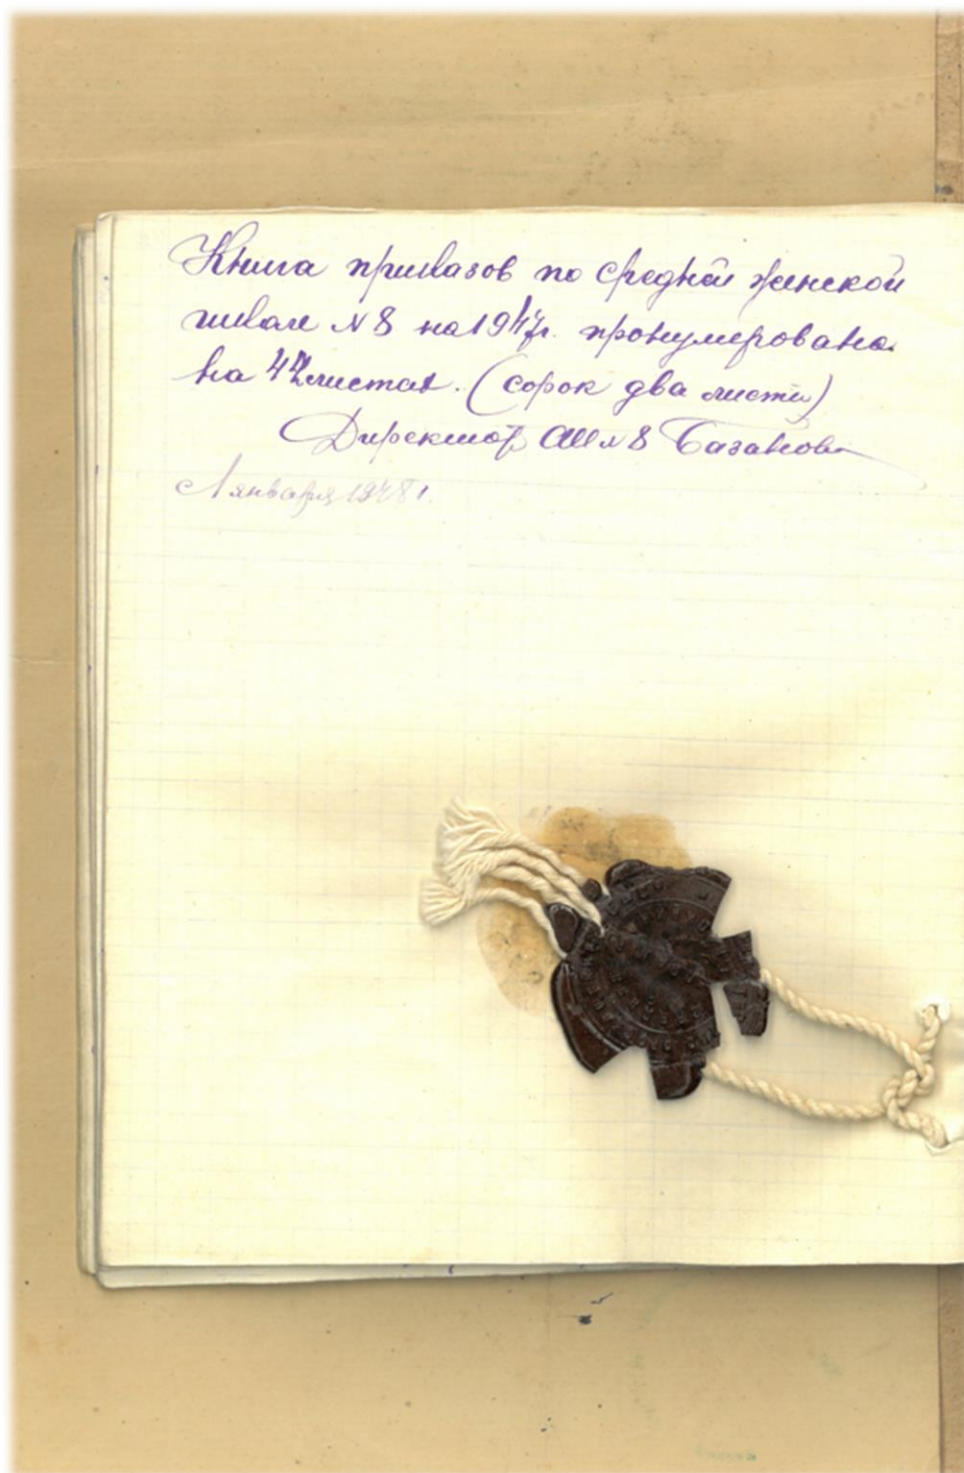 Книга приказов по средней женской
школе N 8 на 1947г. пронумерована
на 42 листах. (сорок два листа)
Директор СШ N 8 Базанова
1 января 1948 г.